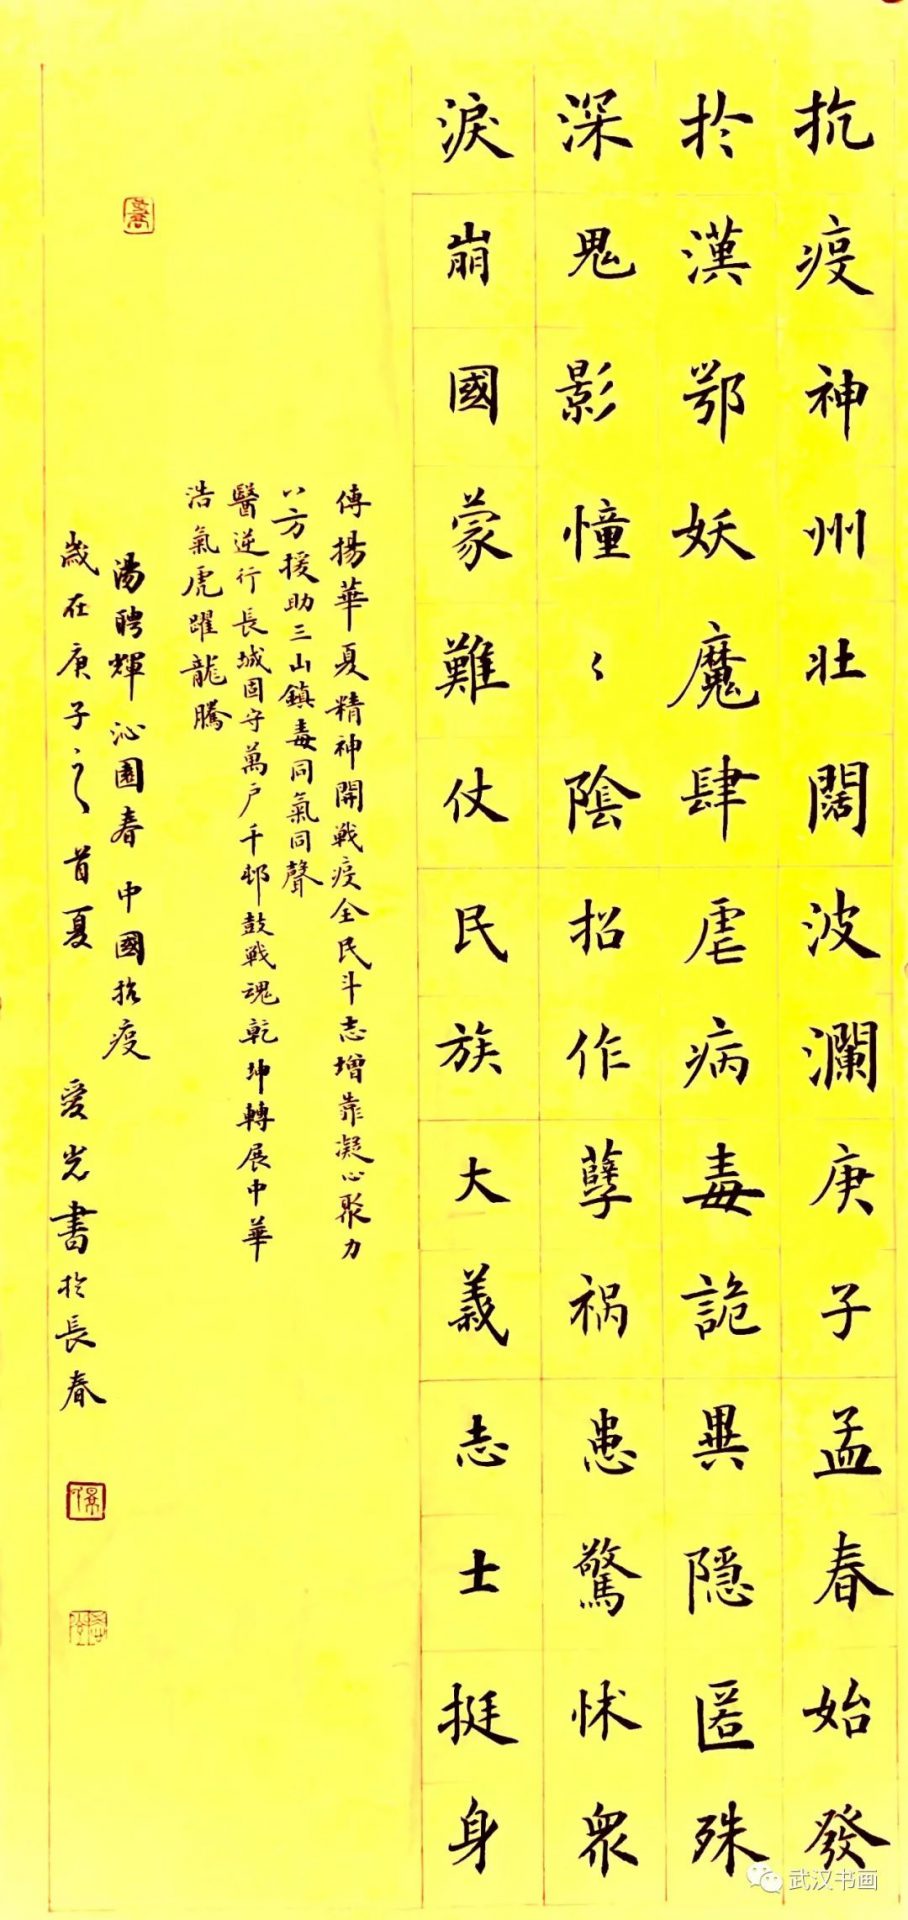 抗疫神州壮闊波瀾庚子孟春始發
於漢鄂妖魔肆虐病毒詭異隱匿殊
深鬼影憧〻陰招作孽祸患驚怵眾
淚崩國蒙難仗民族大義志士挺身
傳揚華夏精神開戰疫全民斗志增靠凝心聚力
八方援助三山鎮毒同氣同聲
醫逆行長城固守萬户千邨鼓戰魂乾坤轉展中華
浩氣虎躍龍騰
湯聘輝沁園春中國抗疫
歲在庚子之首夏 爱光書於長春
武汉书画